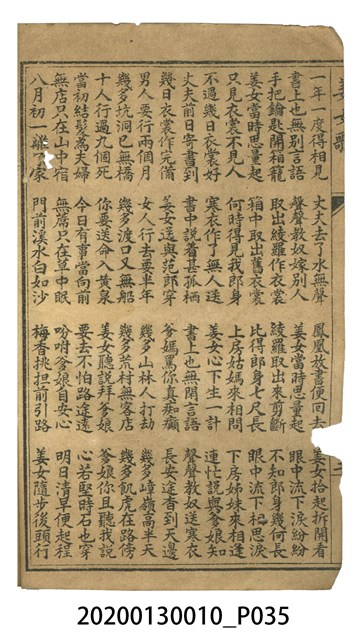 姜女歌
一年一度得相見 丈夫去了水無聲 鳳凰放書便回去 姜女拾起拆開看
書上也無別言語 聲聲教奴嫁別人 姜女當時思量起 眼中流下淚紛紛
手把鑰匙開箱籠 取出綾羅作衣裳 綾羅取出來剪斷 不知郎身幾何長
姜女當時思量起 箱中取出舊衣裳 比得郎身七尺長 眼中流下相思淚
只見衣裳不見人 何時得見我郎身 上房姑媽來相問 下房姊妹來相逢
不過幾日衣裳好 寒衣作了無人送 姜女心下生一計 連忙說與爹娘知
丈夫前日寄書到 書中說着甚孤栖 書上也無閒言語 聲聲教奴送寒衣
幾日衣裳作完備 姜女送與范郎穿 爹媽罵你真痴癲 長安途杳到天邊
男人要行兩個月 女人行去要半年 幾多山林人打劫 幾多峻嶺高半天
幾多坑洞已無橋 幾多渡口又無船 幾多荒村無客店 幾多飢虎在路傍
十人行過九個死 你要送命入黃泉 姜女聽說拜爹娘 爹娘你且聽我說
當初結髮為夫婦 今日有事當向前 要去不怕路途遠 心若堅時石也穿
無店只在山中宿 無端只在草中眠 吩咐爹娘自安心 明日清早便起程
八月初一離家 門前溪水白如沙 梅香挑担前引路 姜女隨步後頭行
20200130010_P035